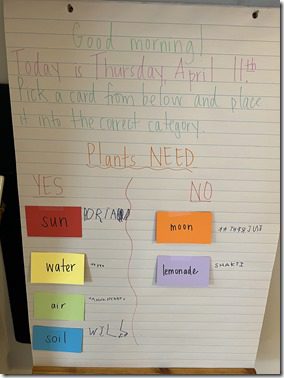 Good morning!
Today is Thursday, April 11th
Pick a card from below and place
it into the carect category.
Plants NEED
YES
NO
sun
moon
water
lemonade
SHAKTI
air
soil
WILL